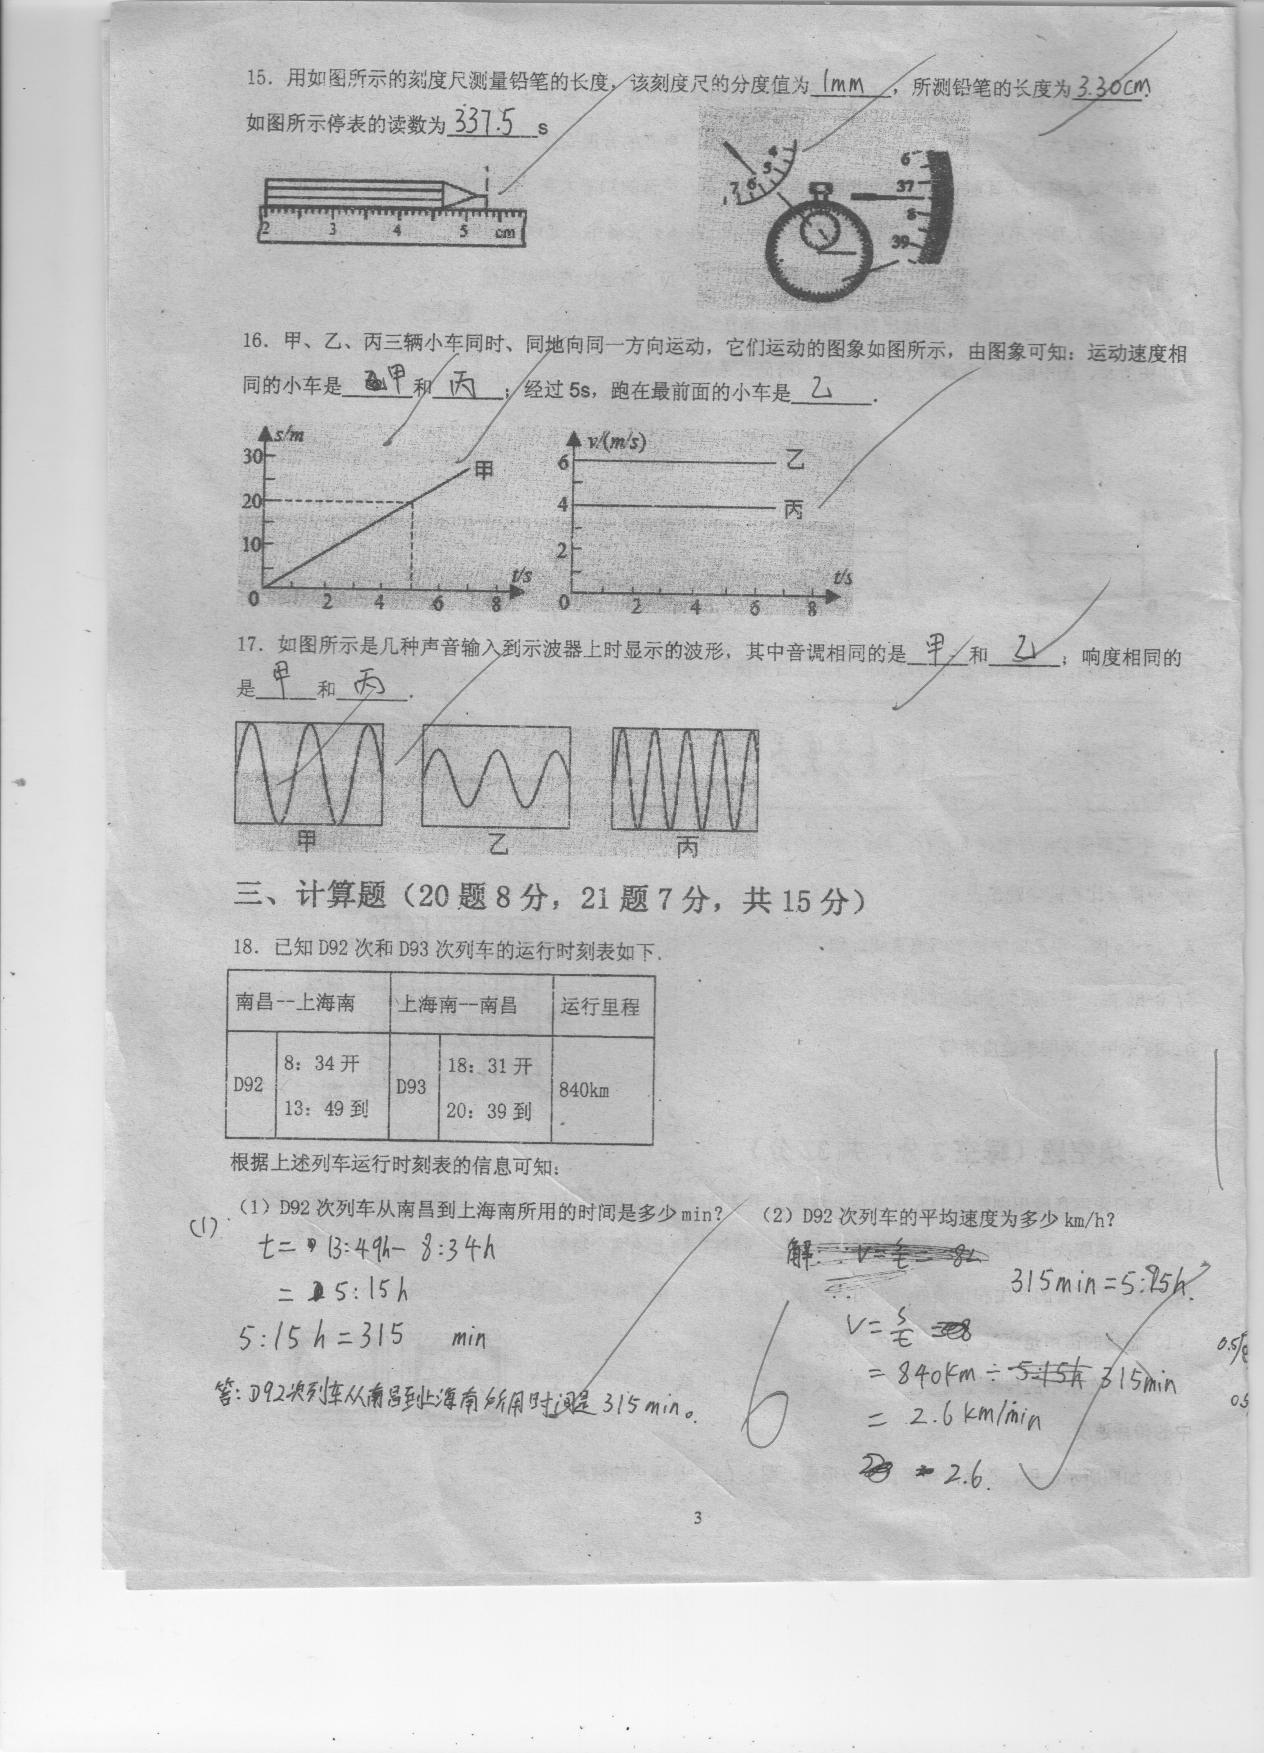 15. 用如图所示的刻度尺测量铅笔的长度,该刻度尺的分度值为 1mm ,所测铅笔的长度为 3.30cm.
如图所示停表的读数为 337.5 s
2 3 4 5 cm
4 5 6 7
6 37 8 39
16. 甲、乙、丙三辆小车同时、同地向同一方向运动,它们运动的图象如图所示,由图象可知:运动速度相
同的小车是 甲 和 丙 ;经过 5s,跑在最前面的小车是 乙 .
s/m
30
20
10
0 2 4 6 8
t/s
甲
v/(m/s)
6
4
2
0 2 4 6 8
t/s
乙
丙
17. 如图所示是几种声音输入到示波器上时显示的波形,其中音调相同的是 甲 和 乙 ;响度相同的
是 甲 和 丙 .
甲 乙 丙
三、计算题(20 题 8 分,21 题 7 分,共 15 分)
18. 已知 D92 次和 D93 次列车的运行时刻表如下.
南昌--上海南 上海南--南昌 运行里程
D92 8:34 开 13:49 到 D93 18:31 开 20:39 到 840km
根据上述列车运行时刻表的信息可知:
(1)D92 次列车从南昌到上海南所用的时间是多少 min? (2)D92 次列车的平均速度为多少 km/h?
(1)
t= 13:49h- 8:34h
= 5:15h
5:15h=315 min
答:D92次列车从南昌到上海南所用时间是315min。
解:
315min=5:15h.
V=s/t
=840km÷ 315min
= 2.6km/min
2.6.
6
0.5
3